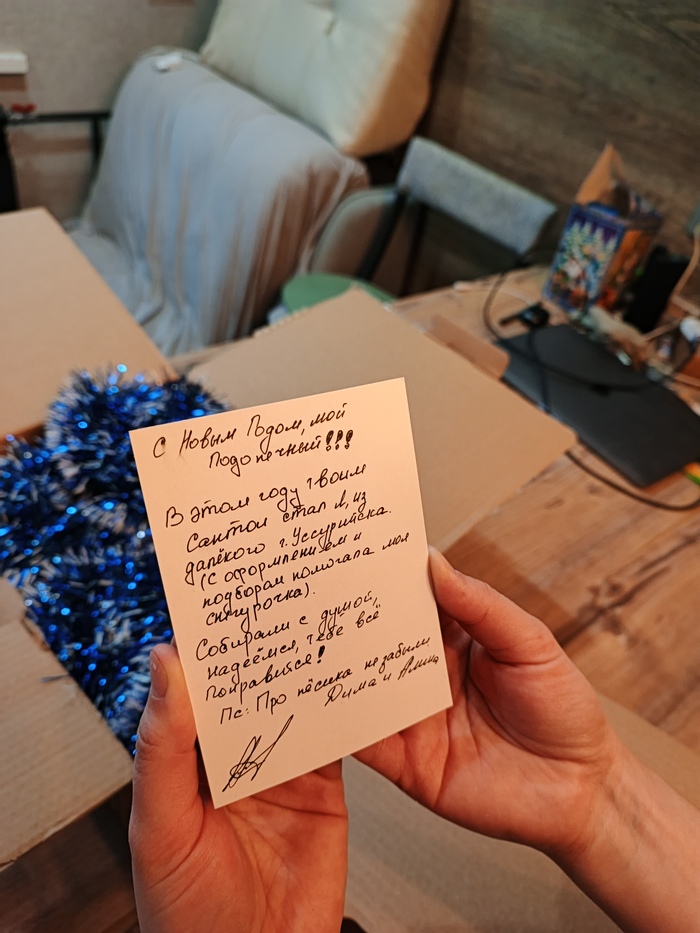 С Новым Годом, мой
Подопечный!!!
В этом году твоим
Сантой стал я, из
далёкого г. Уссурийска.
(С оформлением и
подбором помогала моя
снегурочка).
Собирали с думой,
надеемся, тебе всё
понравится!
Пс: Про пёсика не забыли
Дима и Алина